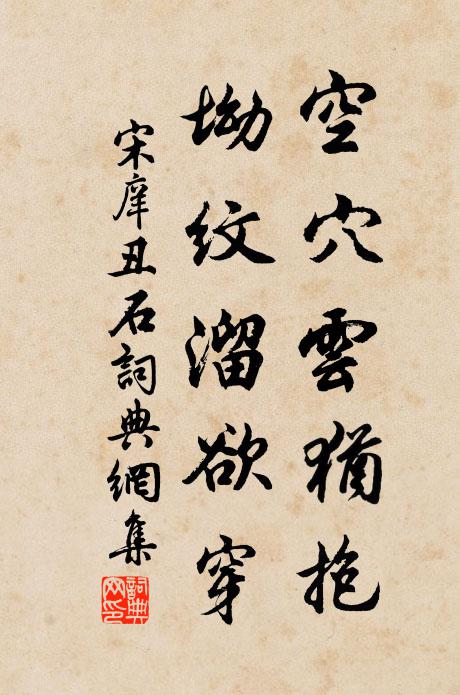 空穴雲猶抱
坳紋溜欲穿
宋庠丑石詞典網集
詞典網印